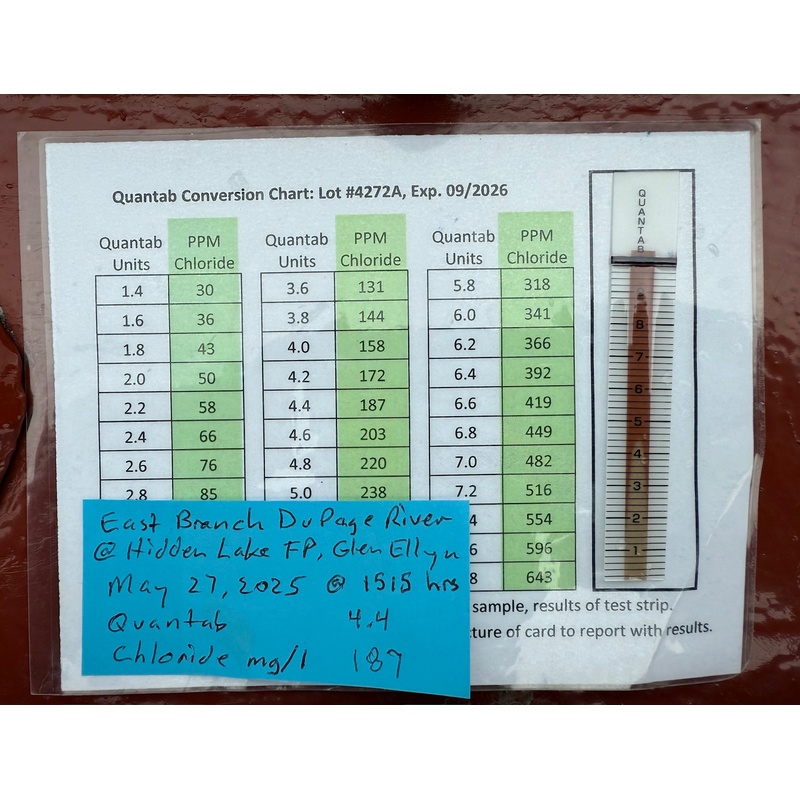 Quantab Conversion Chart: Lot #4272A, Exp. 09/2026
Quantab Units PPM Chloride Quantab Units PPM Chloride Quantab Units PPM Chloride
1.4 30 3.6 131 5.8 318
1.6 36 3.8 144 6.0 341
1.8 43 4.0 158 6.2 366
2.0 50 4.2 172 6.4 392
2.2 58 4.4 187 6.6 419
2.4 66 4.6 203 6.8 449
2.6 76 4.8 220 7.0 482
2.8 85 5.0 238 7.2 516
4 554
6 596
8 643
sample, results of test strip.
cture of card to report with results.
East Branch DuPage River
@ Hidden Lake FP, Glen Ellyn
May 27, 2025 @ 1515 hrs
Quantab 4.4
Chloride mg/l 187
QUANTAB
8
7
6
5
4
3
2
1